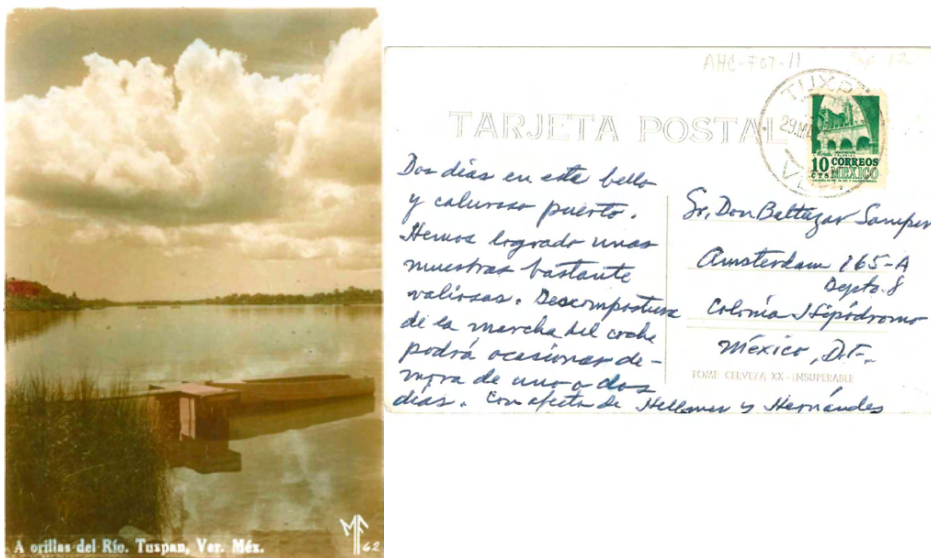 A orillas del Río. Tuxpan, Ver. Méx.
MF
62
AHC-707-11
TARJETA POSTAL
TUXP
29
10 CORREOS
CTS MEXICO
Dos días en este bello
y caluroso puerto.
Hemos logrado unas
muestras bastante
valiosas. Descompostura
de la marcha del coche
podrá ocasionar de-
mora de uno o dos
días. Con afecto de Hellmer y Hernández
Sr. Don Baltazar Samper
Amsterdam 165-A
Depto. 8
Colonia Hipódromo
México, D.F.
TOME CERVEZA XX-INSUPERABLE